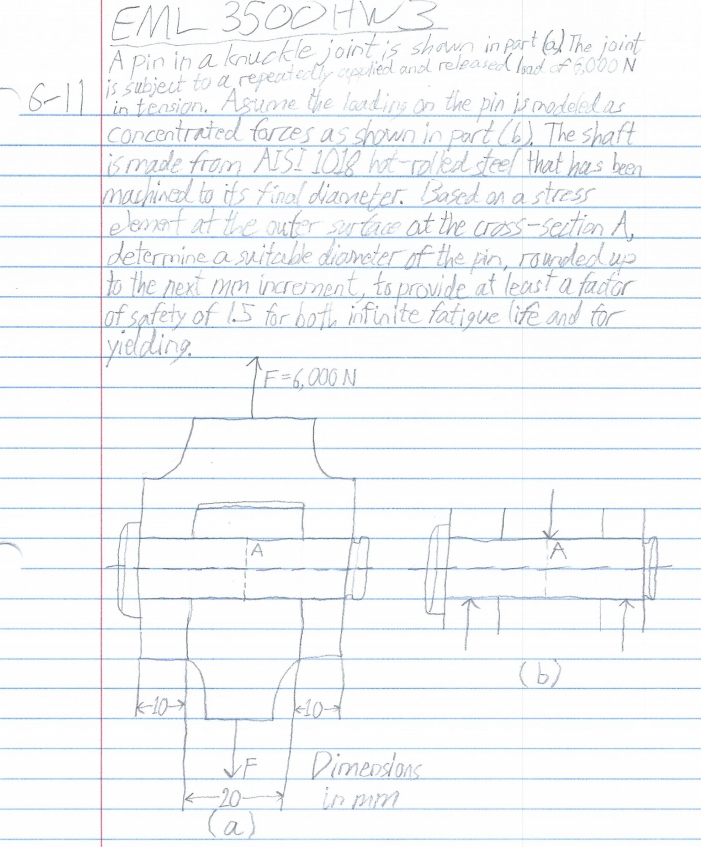 EML 3500 HW 3
A pin in a knuckle joint is shown in part (a). The joint
is subject to a repeatedly applied and released load of 6,000 N
6-11 in tension. Asume the loading on the pin is modeled as
concentrated forces as shown in part (b). The shaft
is made from AISI 1018 hot-rolled steel that has been
machined to its final diameter. Based on a stress
element at the outer surface at the cross-section A,
determine a suitable diameter of the pin, rounded up
to the next mm increment, to provide at least a factor
of safety of 1.5 for both infinite fatigue life and for
yielding.
F=6,000 N
A
A
(b)
10
10
F
Dimensions
in mm
20
(a)